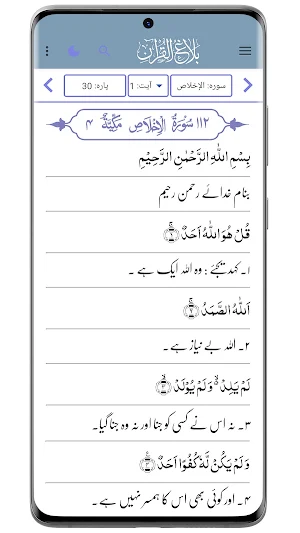 بلاغ القرآن
سورہ: الإخلاص
آیت: 1
پارہ: 30
۱۱۲ سُوْرَۃُ الْاِخْلَاصِ مَکِّیَّۃٌ ۴
بِسْمِ اللّٰہِ الرَّحْمٰنِ الرَّحِیْمِ
بنام خدائے رحمن رحیم
قُلْ ہُوَ اللّٰہُ اَحَدٌ ۚ﴿۱﴾
۱۔ کہدیجئے: وہ اللہ ایک ہے ۔
اَللّٰہُ الصَّمَدُ ۚ﴿۲﴾
۲۔ اللہ بے نیاز ہے۔
لَمْ یَلِدْ ۬ۙ وَ لَمْ یُوْلَدْ ۙ﴿۳﴾
۳۔ نہ اس نے کسی کو جنا اور نہ وہ جنا گیا۔
وَ لَمْ یَکُنْ لَّہٗ کُفُوًا اَحَدٌ ﴿۴﴾
۴۔ اور کوئی بھی اس کا ہمسر نہیں ہے۔